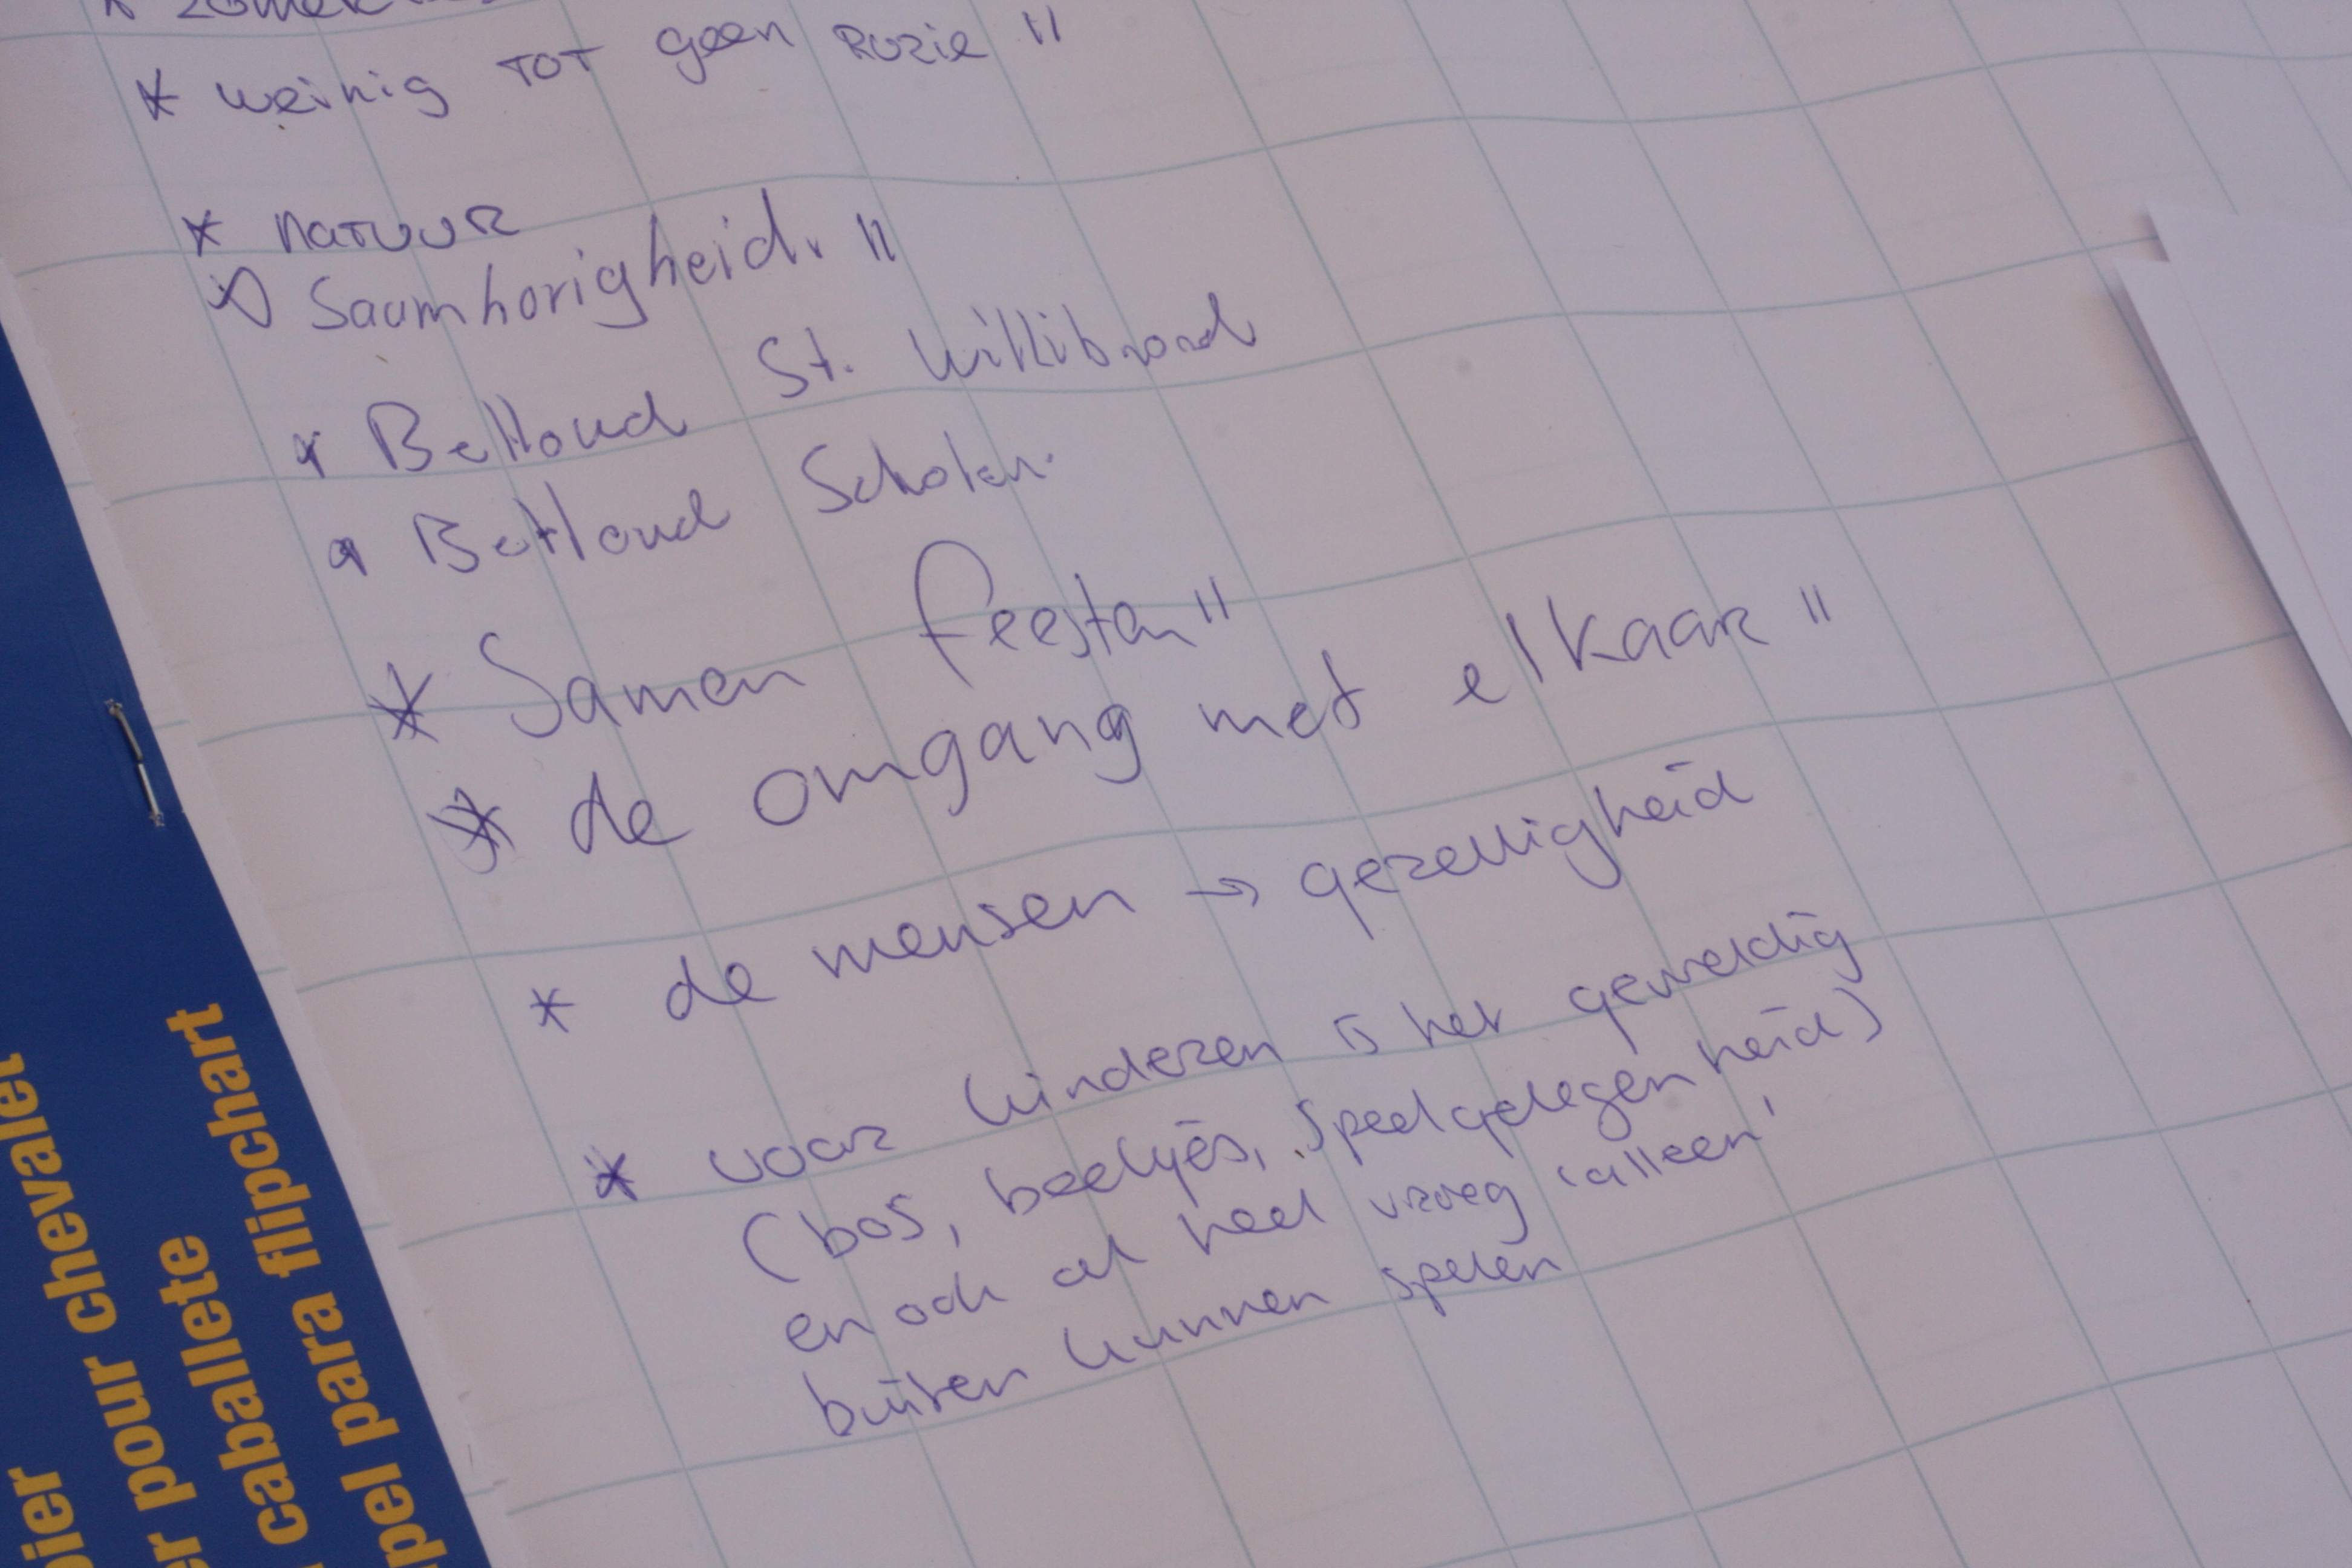 * weinig TOT geen Ruzie "
* natuur
Saamhorigheid. "
* Behoud St. Willibrord
* Behoud Scholen.
* Samen feesten "
* de omgang met elkaar "
* de mensen → gezelligheid
* voor kinderen is het geweldig
(bos, beekjes, speelgelegenheid)
en ook al heel vroeg 'alleen'
buiten kunnen spelen
pour chevalet
caballete
para flipchart